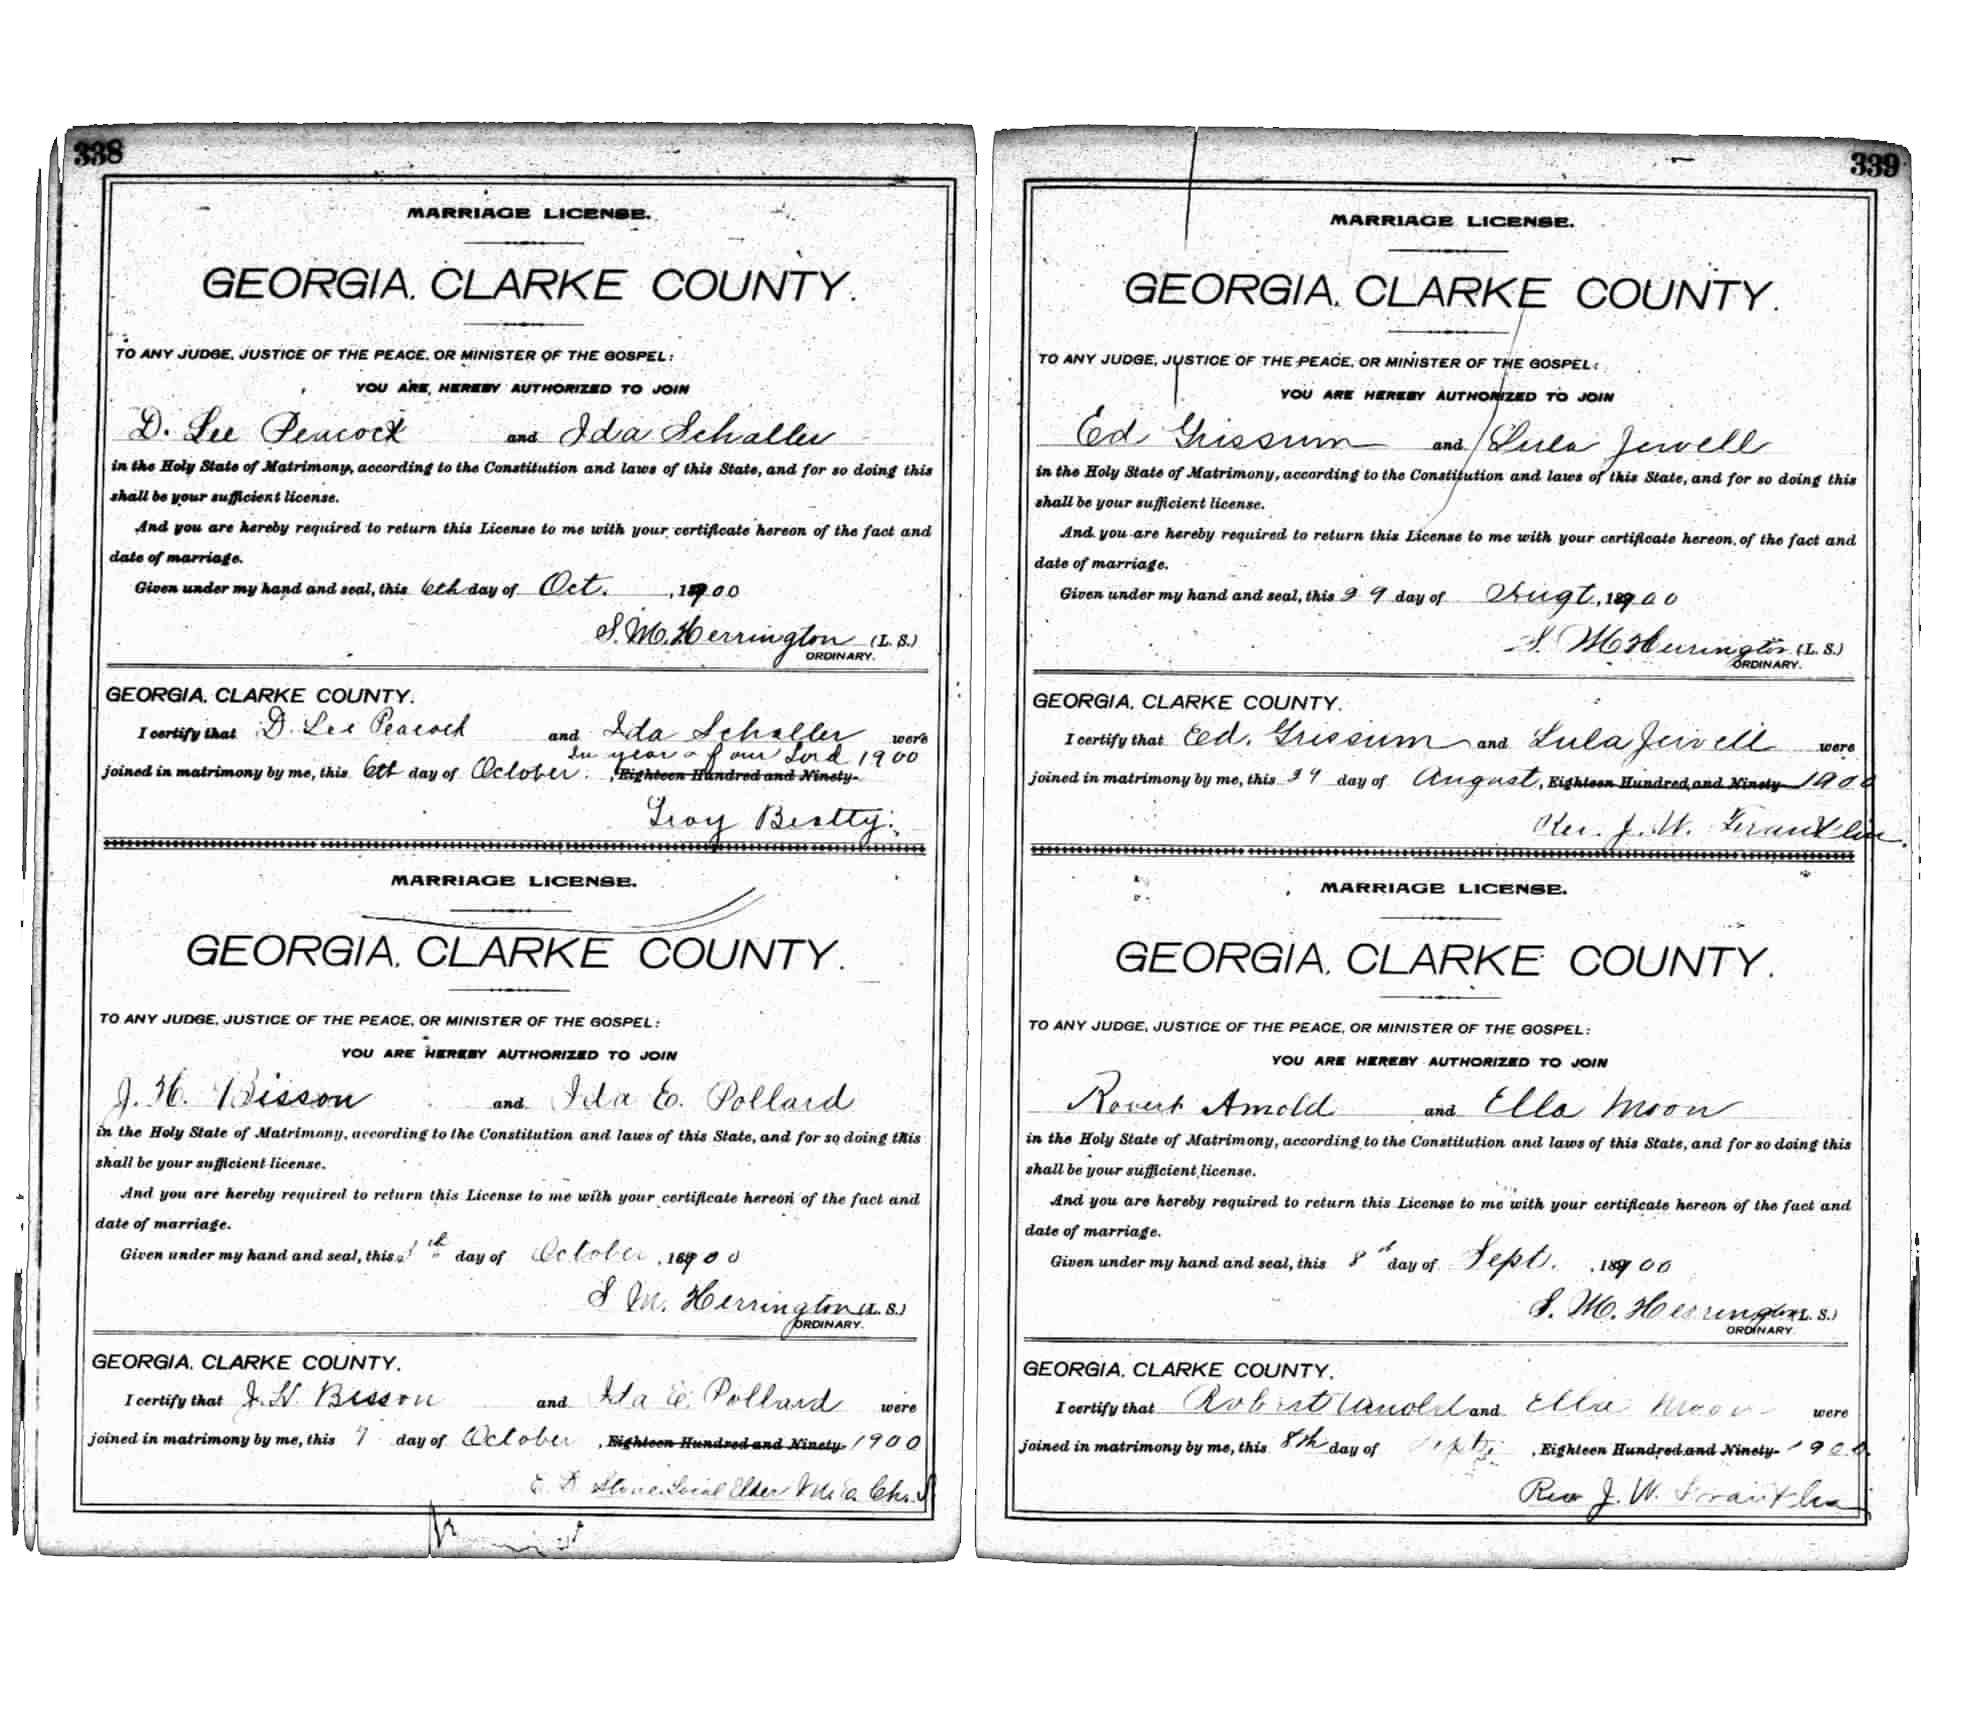 338
MARRIAGE LICENSE.
GEORGIA, CLARKE COUNTY.
TO ANY JUDGE, JUSTICE OF THE PEACE, OR MINISTER OF THE GOSPEL:
YOU ARE HEREBY AUTHORIZED TO JOIN
D. Lee Peacock and Ida Schaller
in the Holy State of Matrimony, according to the Constitution and laws of this State, and for so doing this
shall be your sufficient license.
And you are hereby required to return this License to me with your certificate hereon of the fact and
date of marriage.
Given under my hand and seal, this 6th day of Oct. , 1900
S. M. Herrington (L. S.)
ORDINARY.
GEORGIA, CLARKE COUNTY.
I certify that D. Lee Peacock and Ida Schaller were
In year of our Lord 1900
joined in matrimony by me, this 6th day of October. , Eighteen Hundred and Ninety-
Troy Beatty.
MARRIAGE LICENSE.
GEORGIA, CLARKE COUNTY.
TO ANY JUDGE, JUSTICE OF THE PEACE, OR MINISTER OF THE GOSPEL:
YOU ARE HEREBY AUTHORIZED TO JOIN
J. H. Bisson and Ida E. Pollard
in the Holy State of Matrimony, according to the Constitution and laws of this State, and for so doing this
shall be your sufficient license.
And you are hereby required to return this License to me with your certificate hereon of the fact and
date of marriage.
Given under my hand and seal, this day of October , 1900
S. M. Herrington (L. S.)
ORDINARY.
GEORGIA, CLARKE COUNTY.
I certify that J. H. Bisson and Ida E. Pollard were
joined in matrimony by me, this 7 day of October , Eighteen Hundred and Ninety- 1900
E. D. Stone Local Elder M. E. Ch. S
339
MARRIAGE LICENSE.
GEORGIA, CLARKE COUNTY.
TO ANY JUDGE, JUSTICE OF THE PEACE, OR MINISTER OF THE GOSPEL:
YOU ARE HEREBY AUTHORIZED TO JOIN
Ed Grissum and Lula Jewell
in the Holy State of Matrimony, according to the Constitution and laws of this State, and for so doing this
shall be your sufficient license.
And you are hereby required to return this License to me with your certificate hereon of the fact and
date of marriage.
Given under my hand and seal, this 29 day of Augt , 1900
S. M. Herrington (L. S.)
ORDINARY.
GEORGIA, CLARKE COUNTY.
I certify that Ed. Grissum and Lula Jewell were
joined in matrimony by me, this 29 day of August , Eighteen Hundred and Ninety- 1900
Rev. J. W. Franklin
MARRIAGE LICENSE.
GEORGIA, CLARKE COUNTY.
TO ANY JUDGE, JUSTICE OF THE PEACE, OR MINISTER OF THE GOSPEL:
YOU ARE HEREBY AUTHORIZED TO JOIN
Robert Arnold and Ella Moon
in the Holy State of Matrimony, according to the Constitution and laws of this State, and for so doing this
shall be your sufficient license.
And you are hereby required to return this License to me with your certificate hereon of the fact and
date of marriage.
Given under my hand and seal, this 8th day of Sept. , 1900
S. M. Herrington (L. S.)
ORDINARY.
GEORGIA, CLARKE COUNTY.
I certify that Robert Arnold and Ella Moon were
joined in matrimony by me, this 8th day of Sept. , Eighteen Hundred and Ninety- 1900.
Rev J. W. Franklin